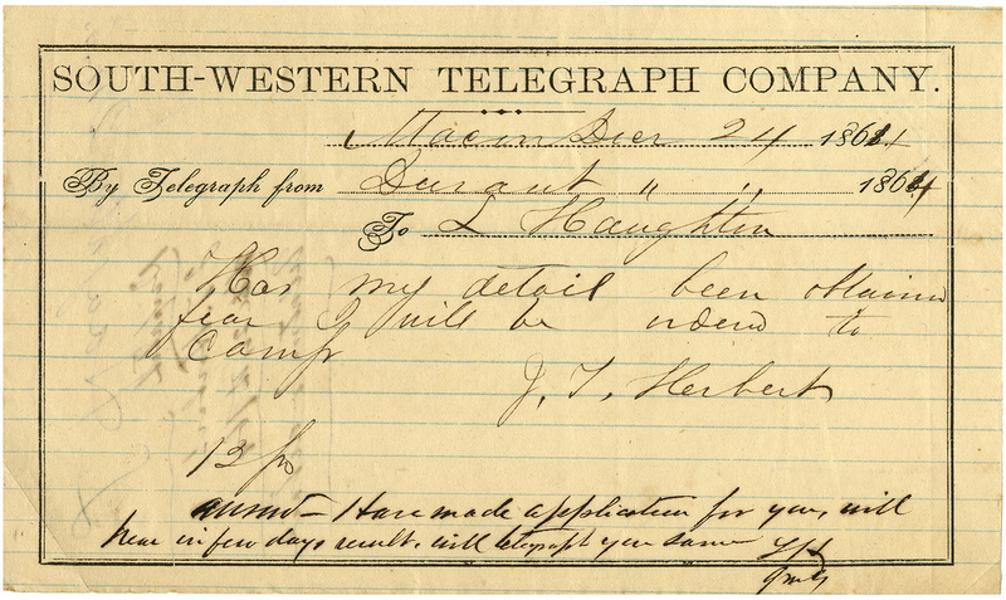 SOUTH-WESTERN TELEGRAPH COMPANY.
Macon Decr 24 1864
By Telegraph from Durant " " 1864
To L Haughton
Has my detail been obtained
fear I will be orderd to
Camp
J. T. Herbert
answer – Have made application for you, will
hear in few days result. will telegraph you same